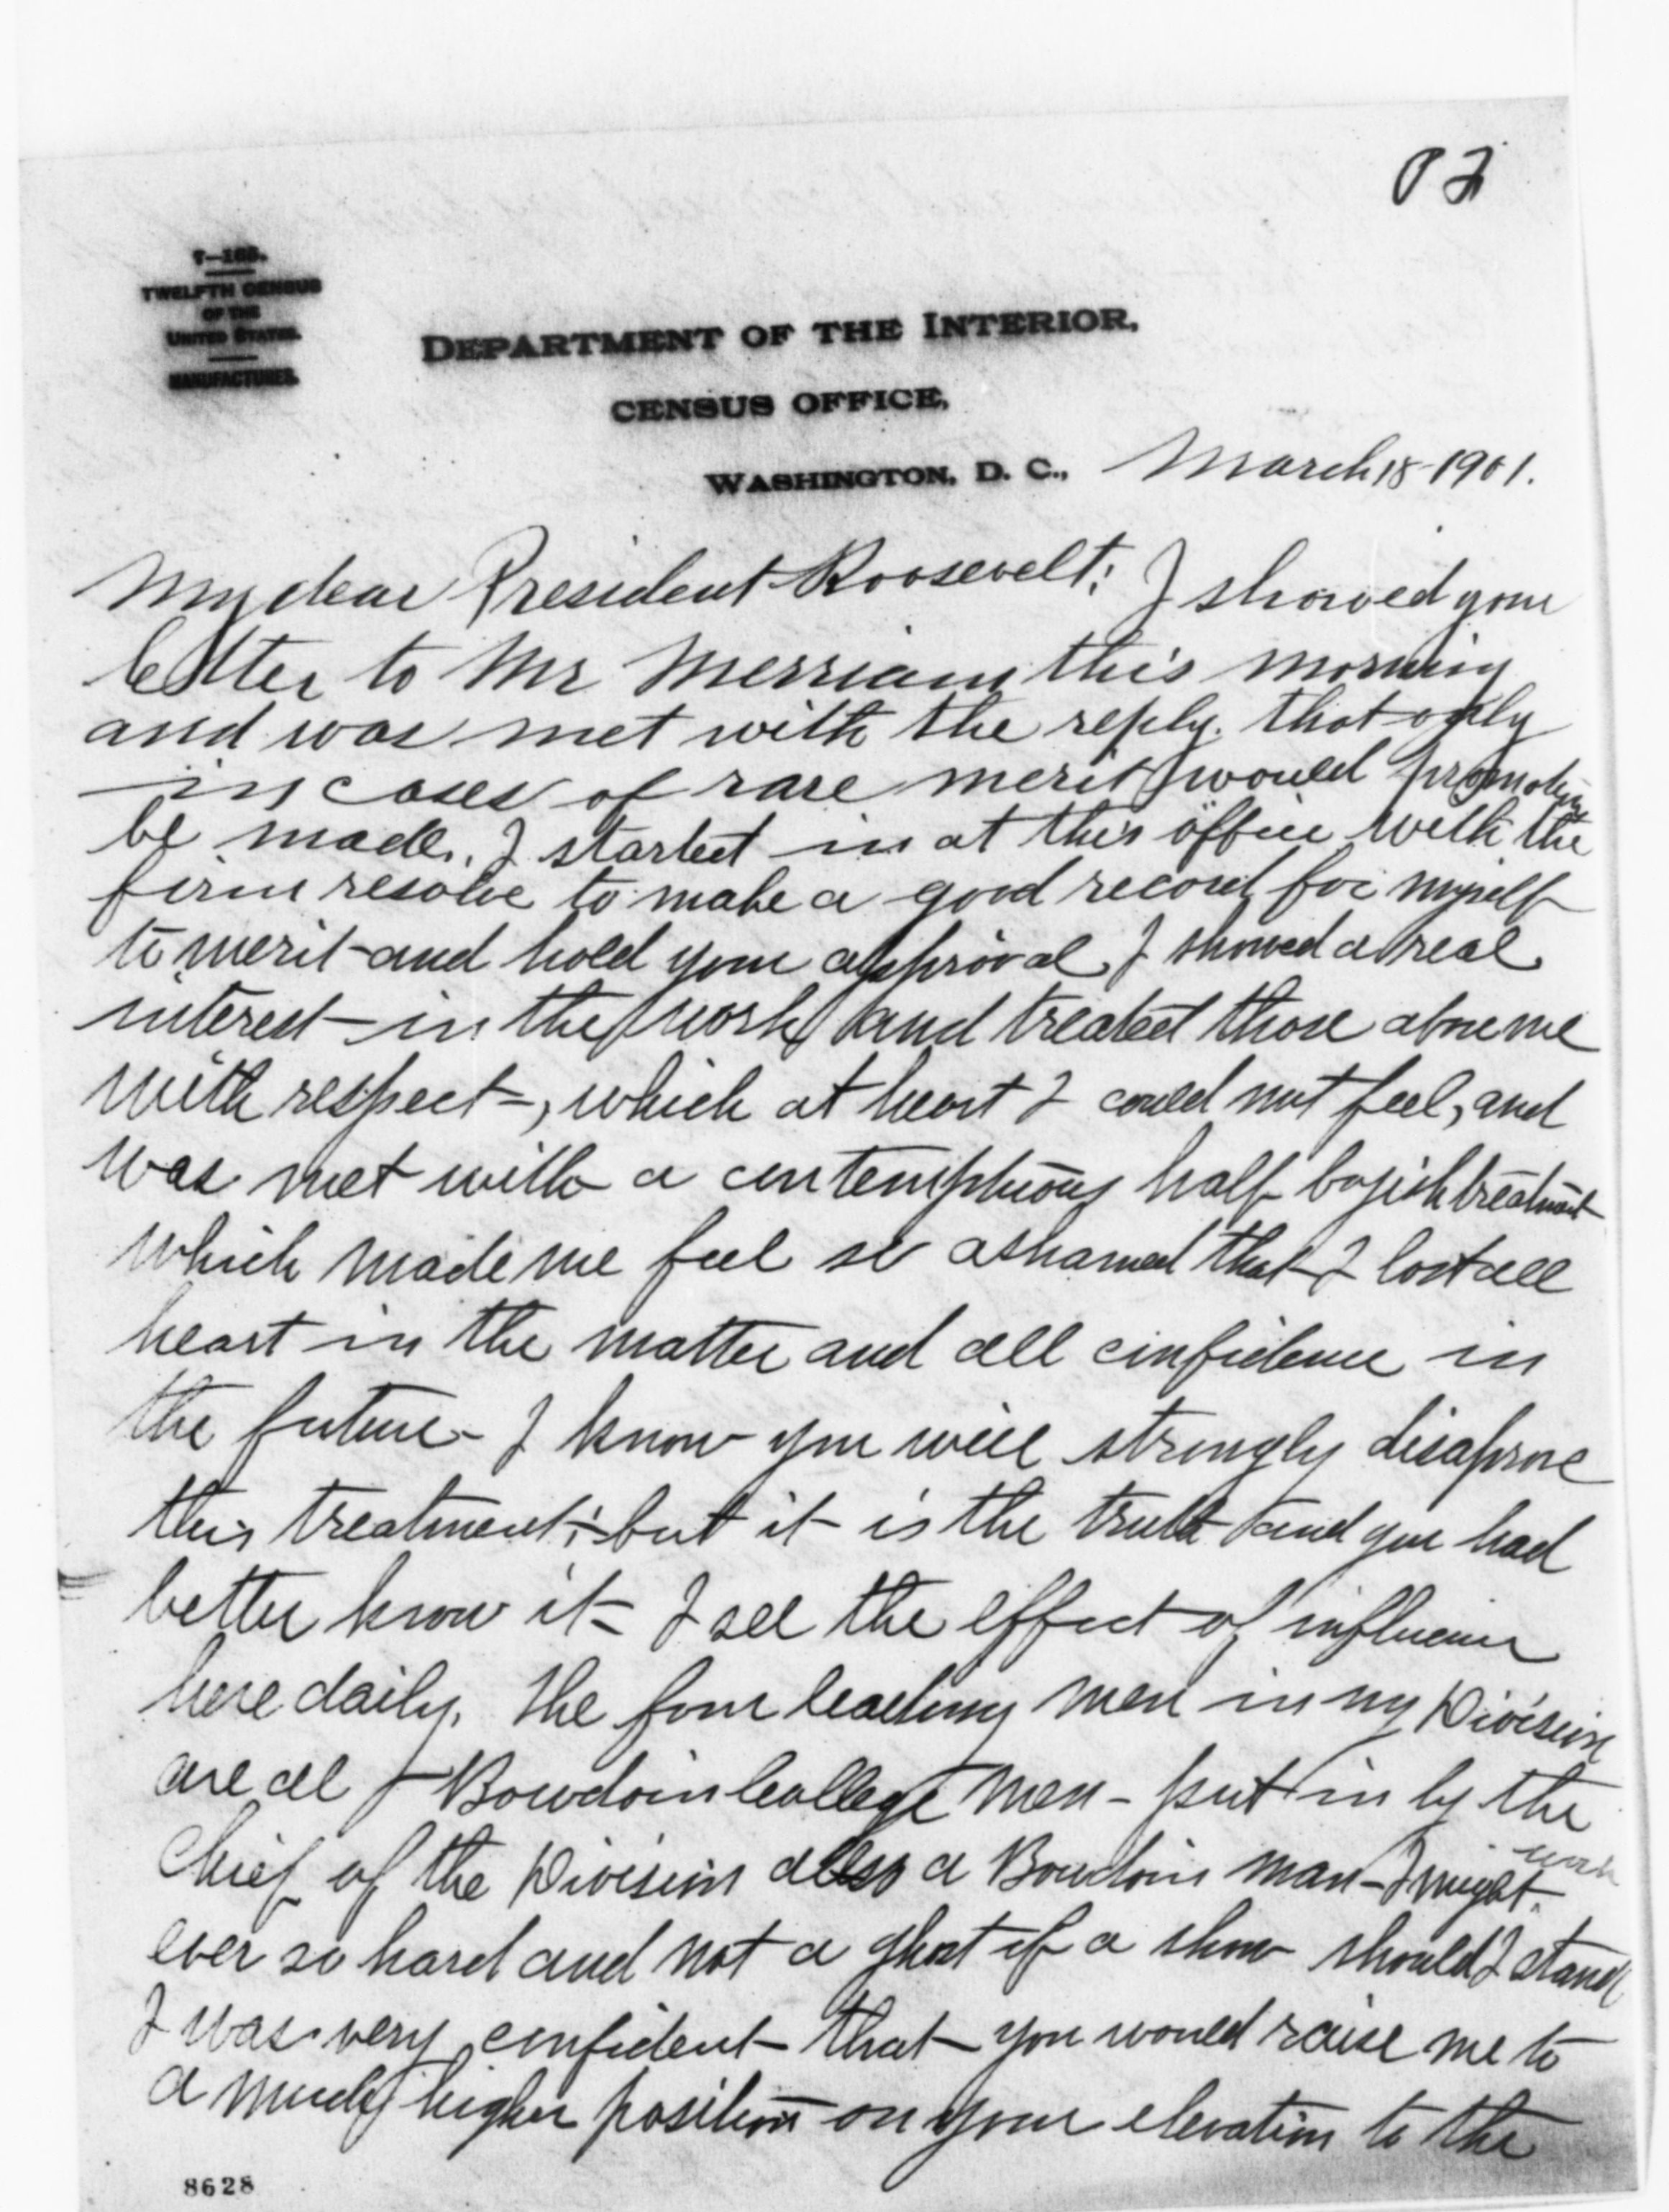 P2
T—168.
TWELFTH CENSUS
OF THE
UNITED STATES.
MANUFACTURES.
DEPARTMENT OF THE INTERIOR,
CENSUS OFFICE,
WASHINGTON, D. C., March 18-1901.
My dear President Roosevelt: I showed your
letter to Mr Merriam this morning
and was met with the reply. that only
in cases of rare merit would promotions
be made. I started in at this office with the
firm resolve to make a good record for myself
to merit and hold your approval. I showed a real
interest in the work and treated those above me
with respect, which at heart I could not feel, and
was met with a contemptuous half boyish treatment
which made me feel so ashamed that I lost all
heart in the matter and all confidence in
the future - I know you will strongly disaprove
this treatment; - but it is the truth and you had
better know it - I see the effect of influence
here daily. The four leading men in my Division
are all - Bowdoin College men - put in by the
Chief of the Division also a Bowdoin man - I might work
ever so hard and not a ghost of a show should I stand
I was very confident that you would raise me to
a much higher position on your elevation to the
8628